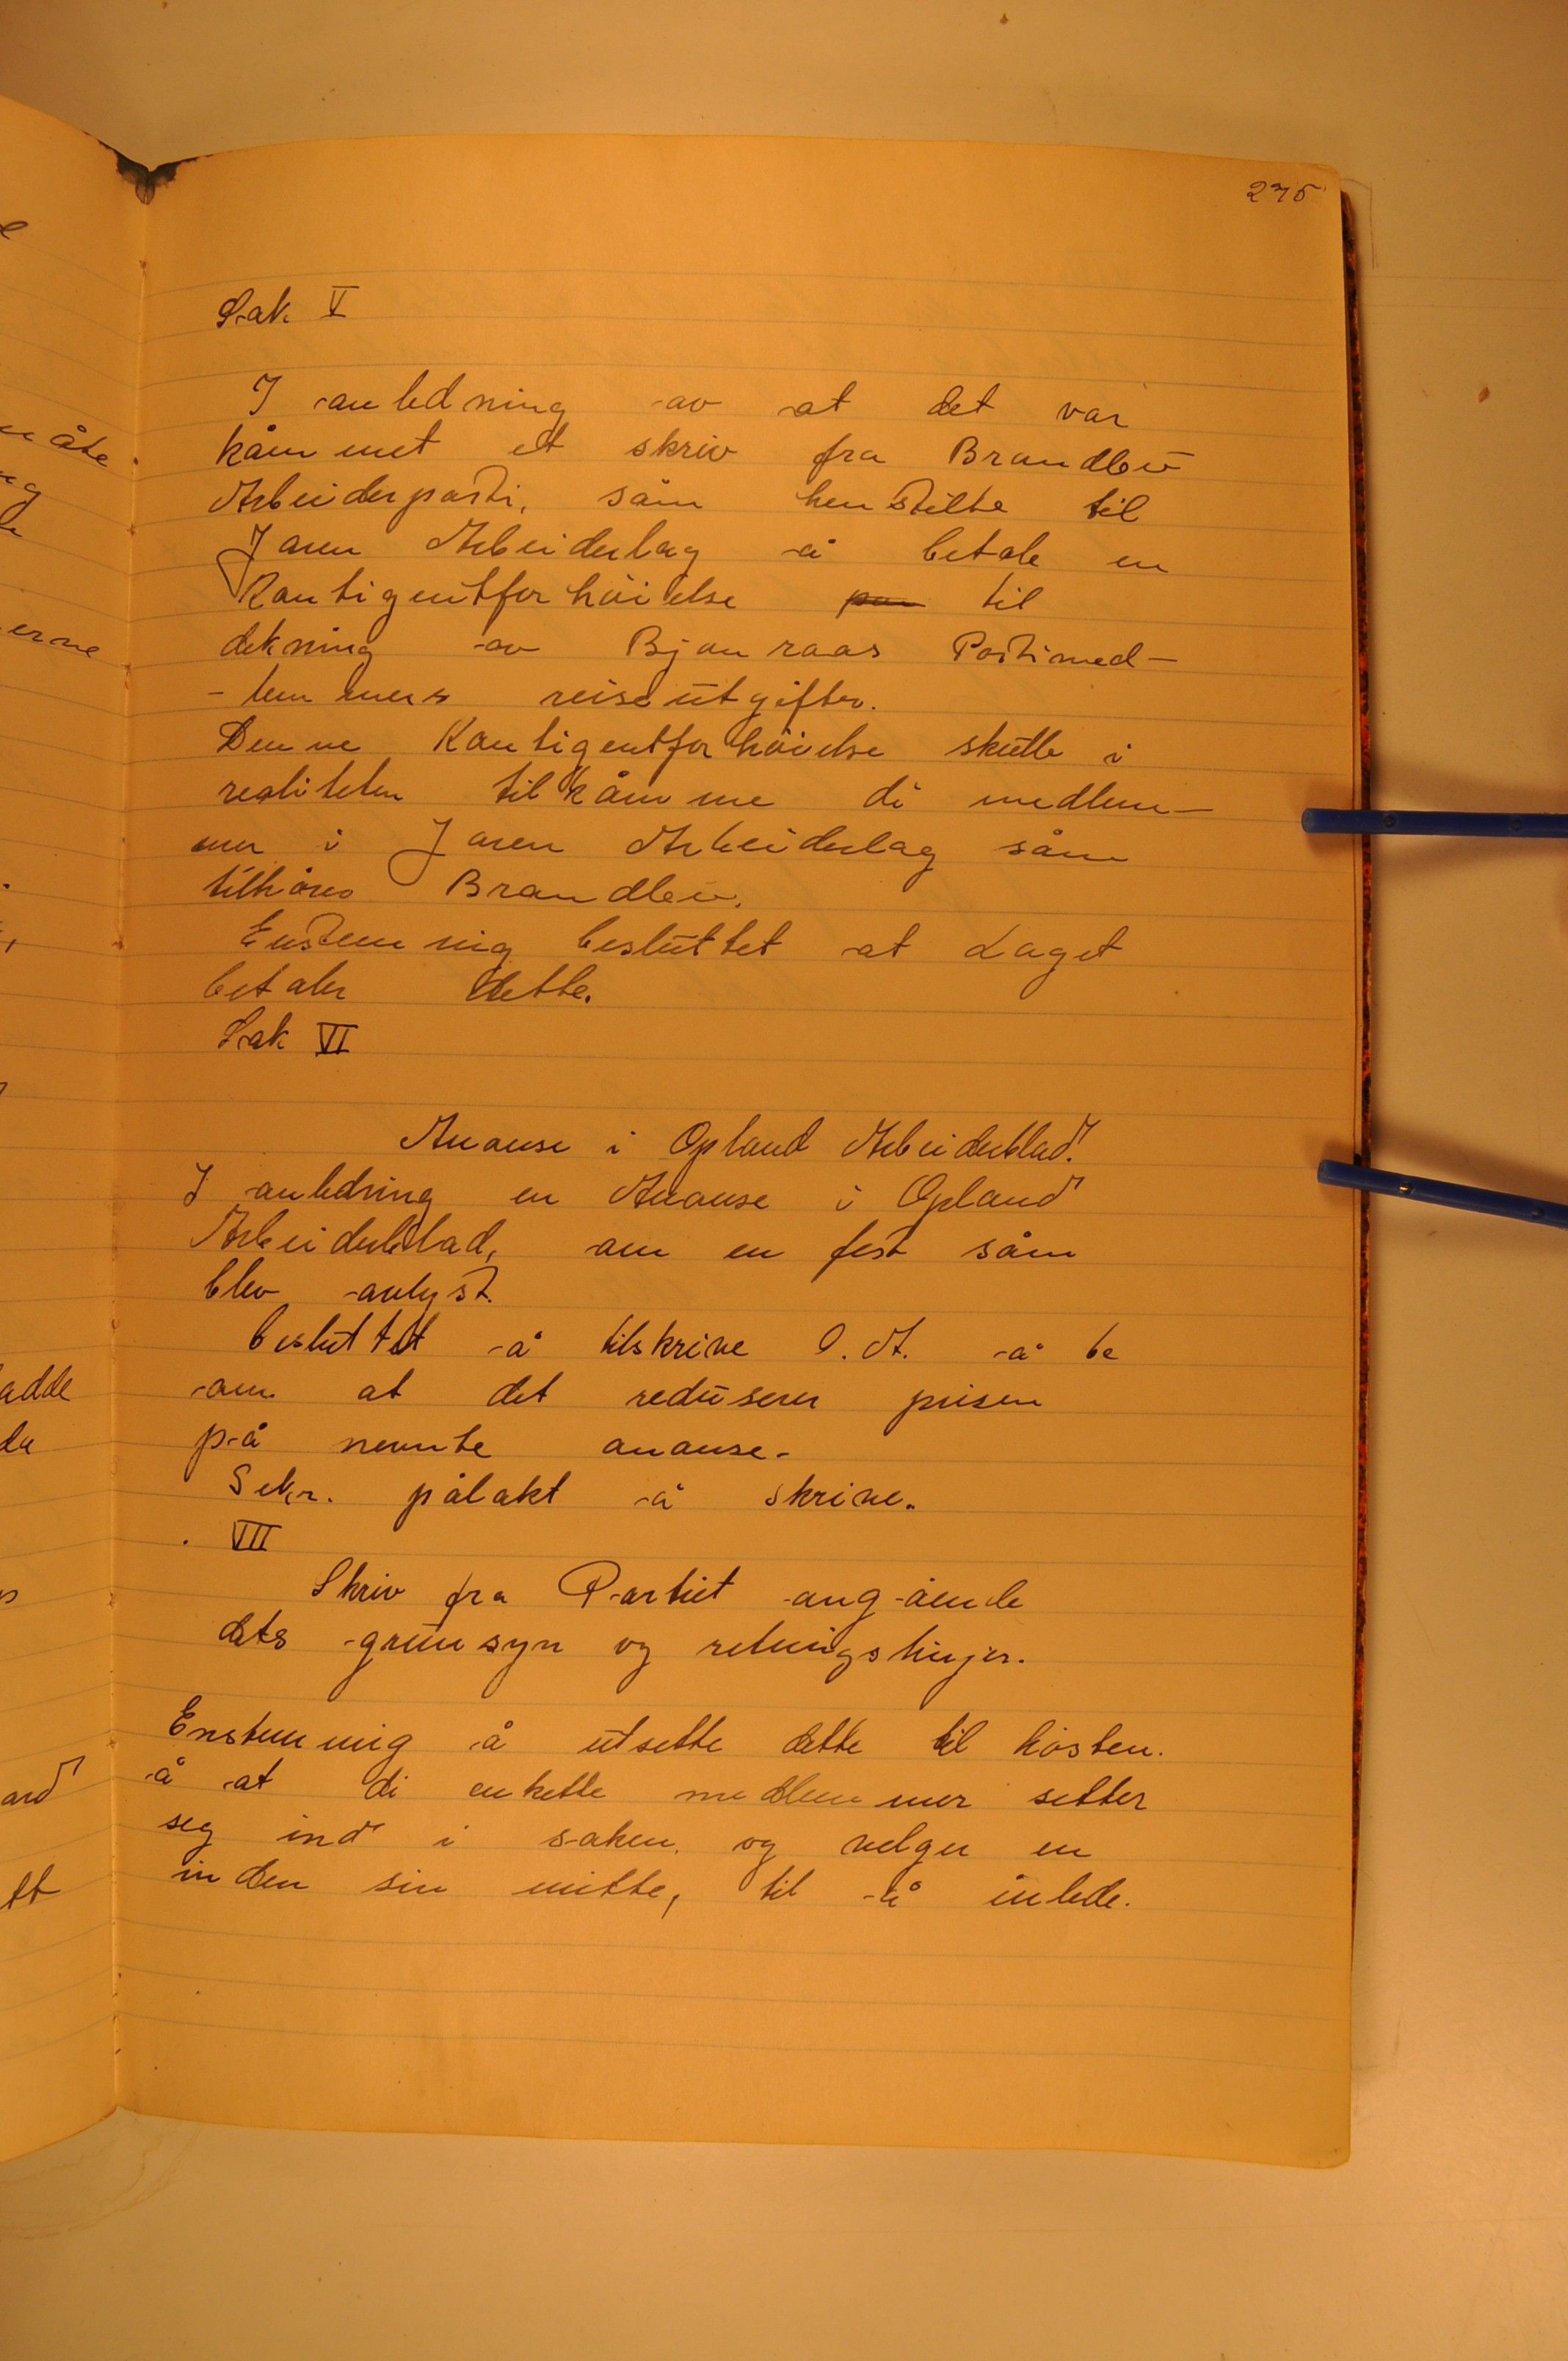 275
Sak V
I anledning av at det var
kåmmet et skriv fra Brandbu
Arbeiderparti, såm henstilte til
Jaren Arbeiderlag å betale en
Kantigentforhöielse til
dekning av Bjonraas Partimed-
-lemmers reiseutgifter.
Denne Kantigentforhöielse skulle i
realiteten tilkåmme di medlem-
mer i Jaren Arbeiderlag såm
tilhörer Brandbu.
Enstemmig besluttet at Laget
betaler dette.
Sak VI
Anonse i Opland Arbeiderblad.
I anledning en Anonse i Opland
Arbeiderblad, am en fest såm
blev avlyst.
besluttet å tilskrive O.A. å be
am at det reduserer prisen
på nevnte anonse.
Sekr. pålakt å skrive.
VII
Skriv fra Partiet angående
dets grunsyn og retningslinjer.
Enstemmig å utsette dette til hösten.
å at di enkelte medlemmer setter
seg ind i saken, og velger en
inden sin mitte, til å inlede.